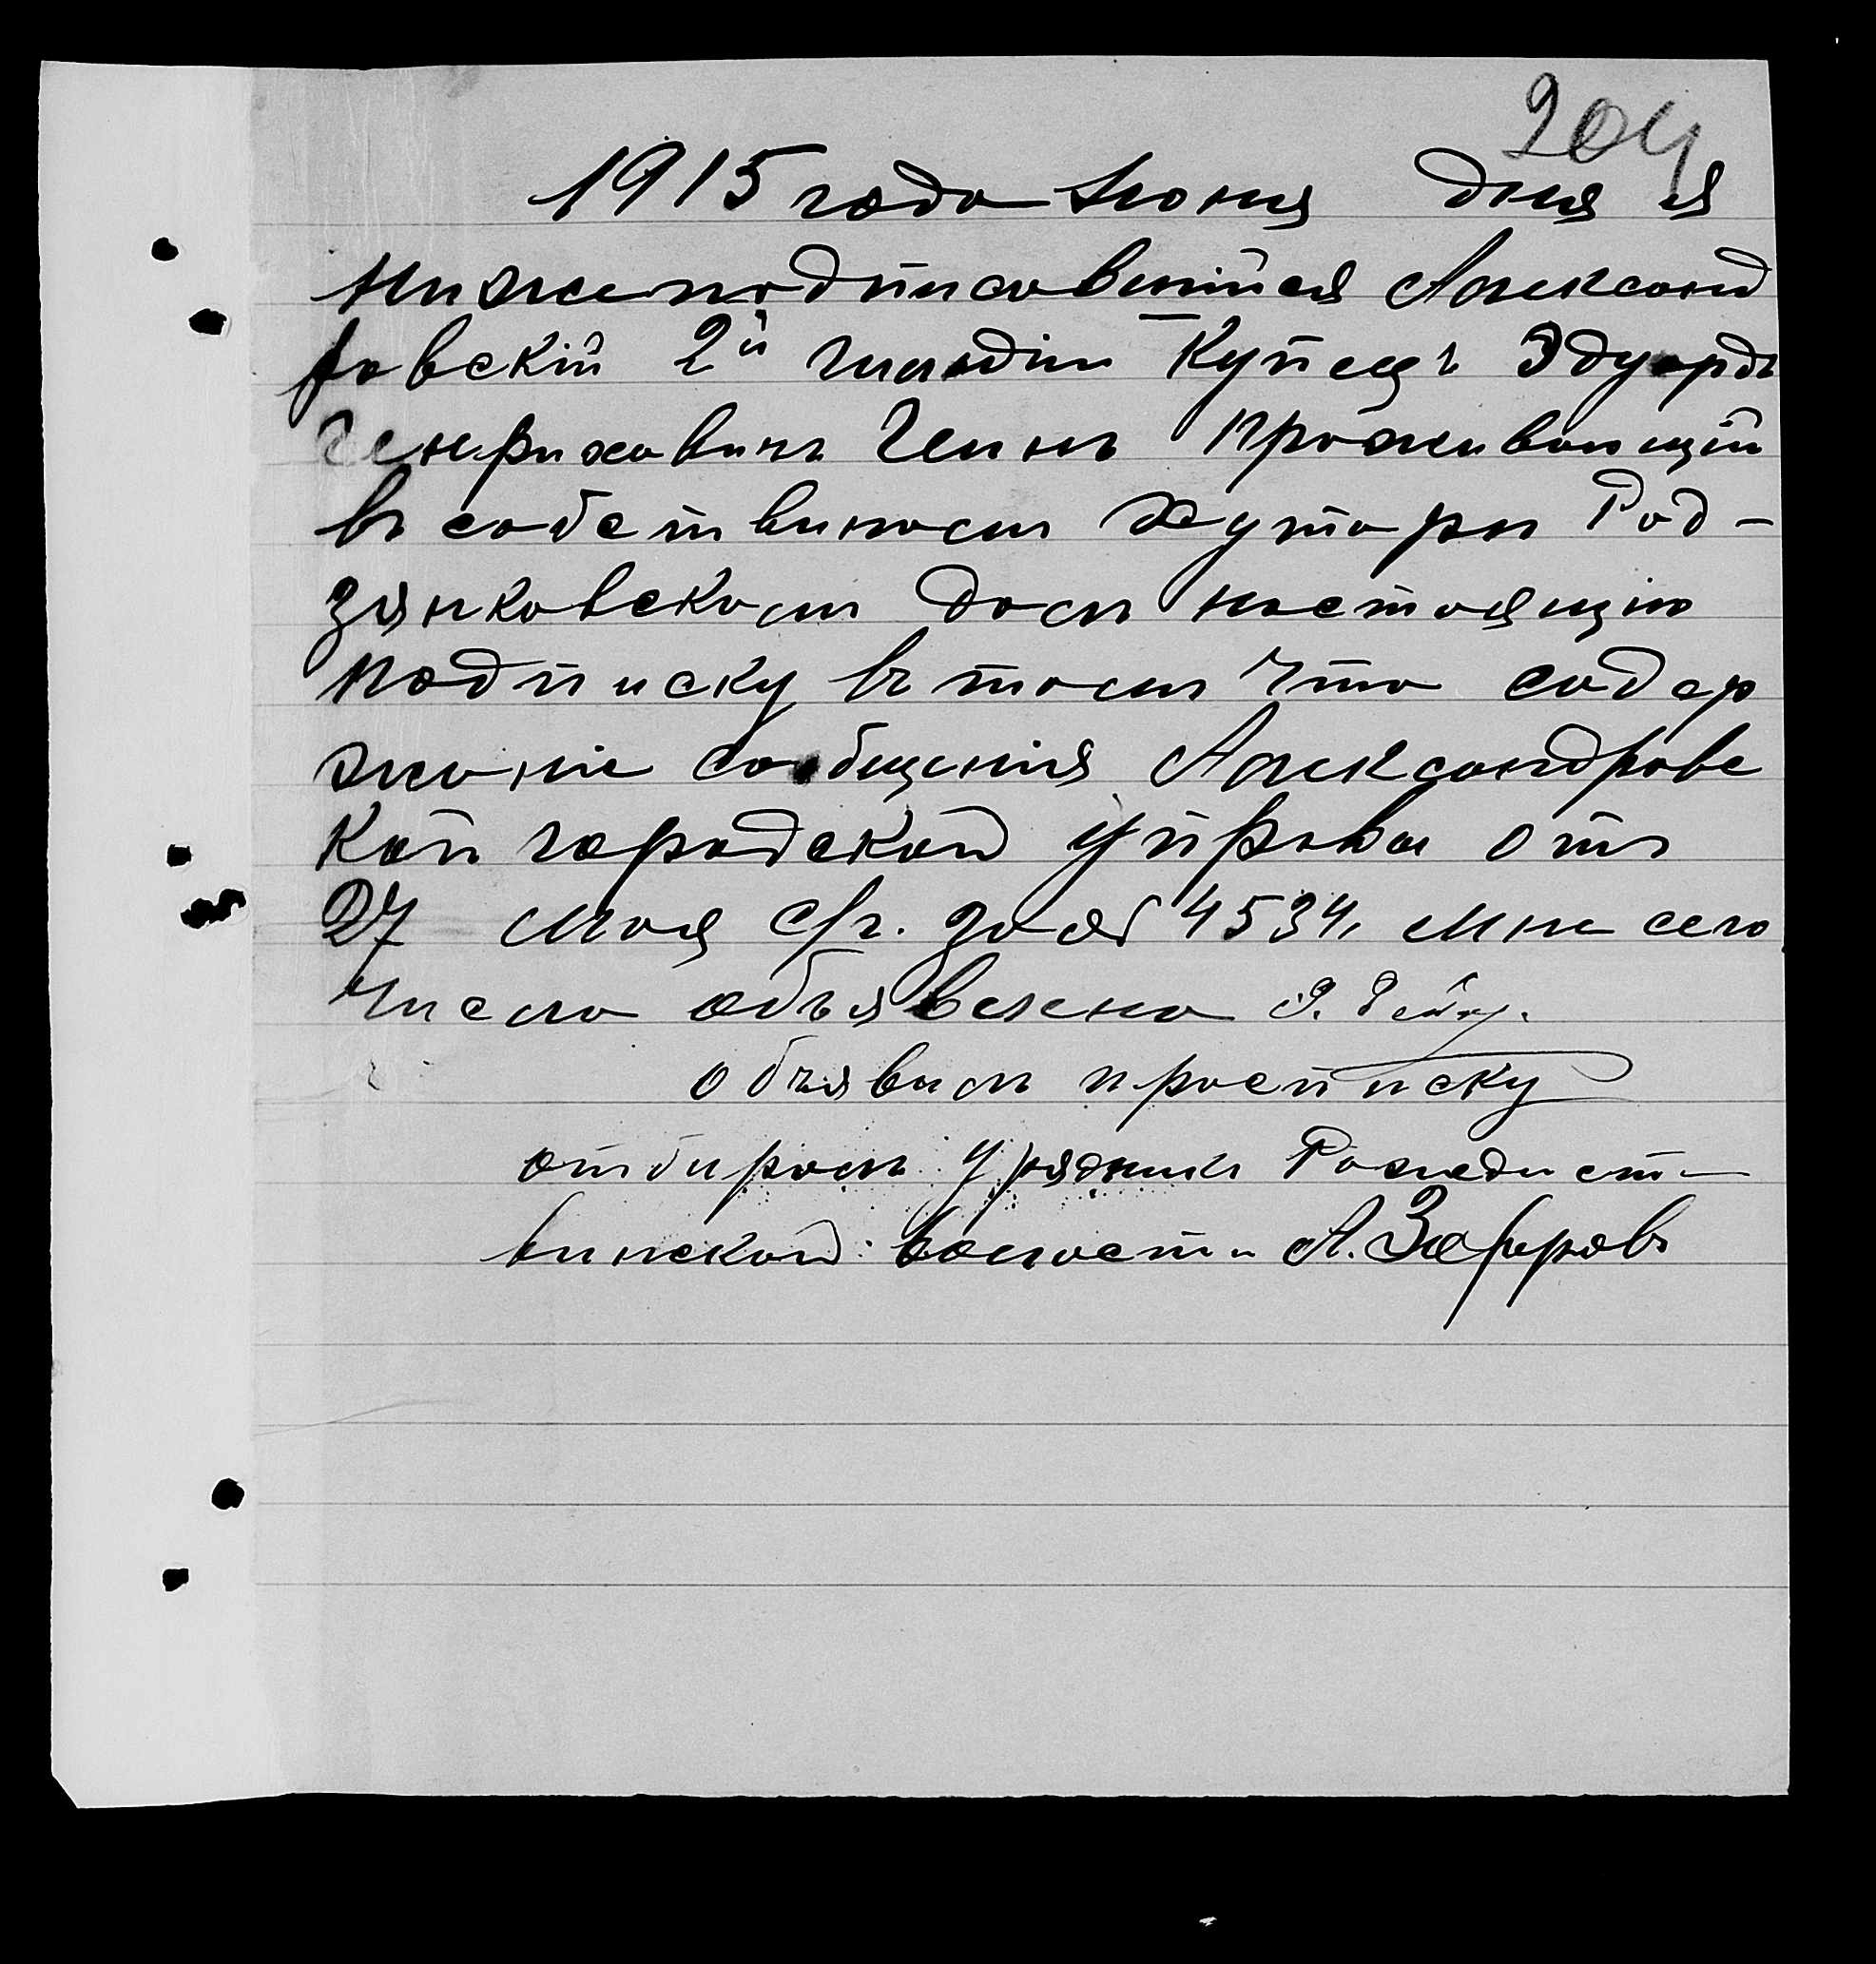 204
1915 года Июня дня я
нижеподписавшійся Александ
ровскій 2й гильдіи Купецъ Эдуардъ
Генриховичъ Геинъ проживающій
въ собственомъ хуторѣ Род-
зянковскомъ далъ настоящію
подписку въ томъ что содер
жаніе сообщенія Александровс
кой городской управы отъ
27 мая с/г. за № 4534, мнѣ сего
числа объявлено Э.
объявилъ и росписку
отбиралъ урядникъ Рождест-
винской волости А.